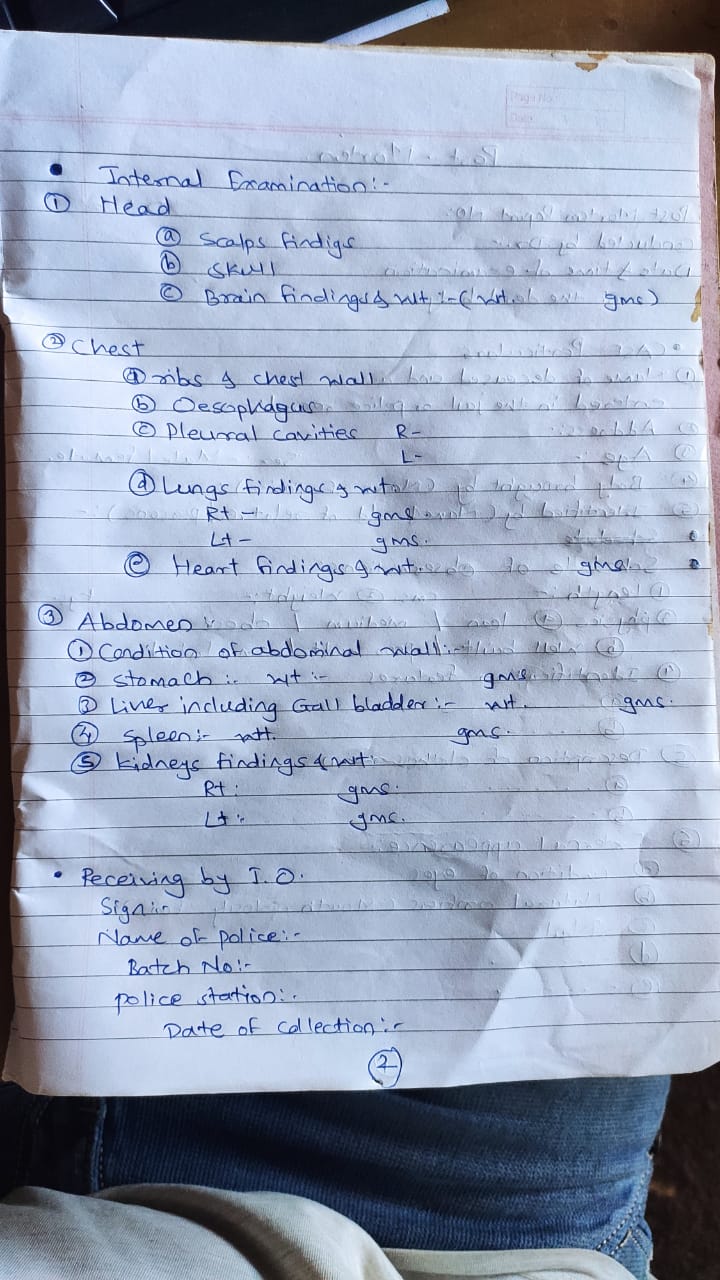 Page No.
Date
• Internal Examination:-
① Head
ⓐ Scalps findigs
ⓑ Skull
ⓒ Brain findings & wt :- (wt. gms)
② Chest
ⓐ ribs & chest wall
ⓑ Oesophagus
ⓒ Pleural cavities R-
L-
ⓓ Lungs findings & wt
Rt - gms
Lt - gms.
ⓔ Heart findings & wt. gms.
③ Abdomen
① Condition of abdominal wall:-
② Stomach :- wt :- gms
③ Liver including Gall bladder :- wt. gms.
④ Spleen :- wt. gms.
⑤ kidneys findings & wt
Rt : gms.
Lt :- gms.
• Receiving by I.O.
Sign :-
Name of police :-
Batch No :-
police station :-
Date of collection :-
②